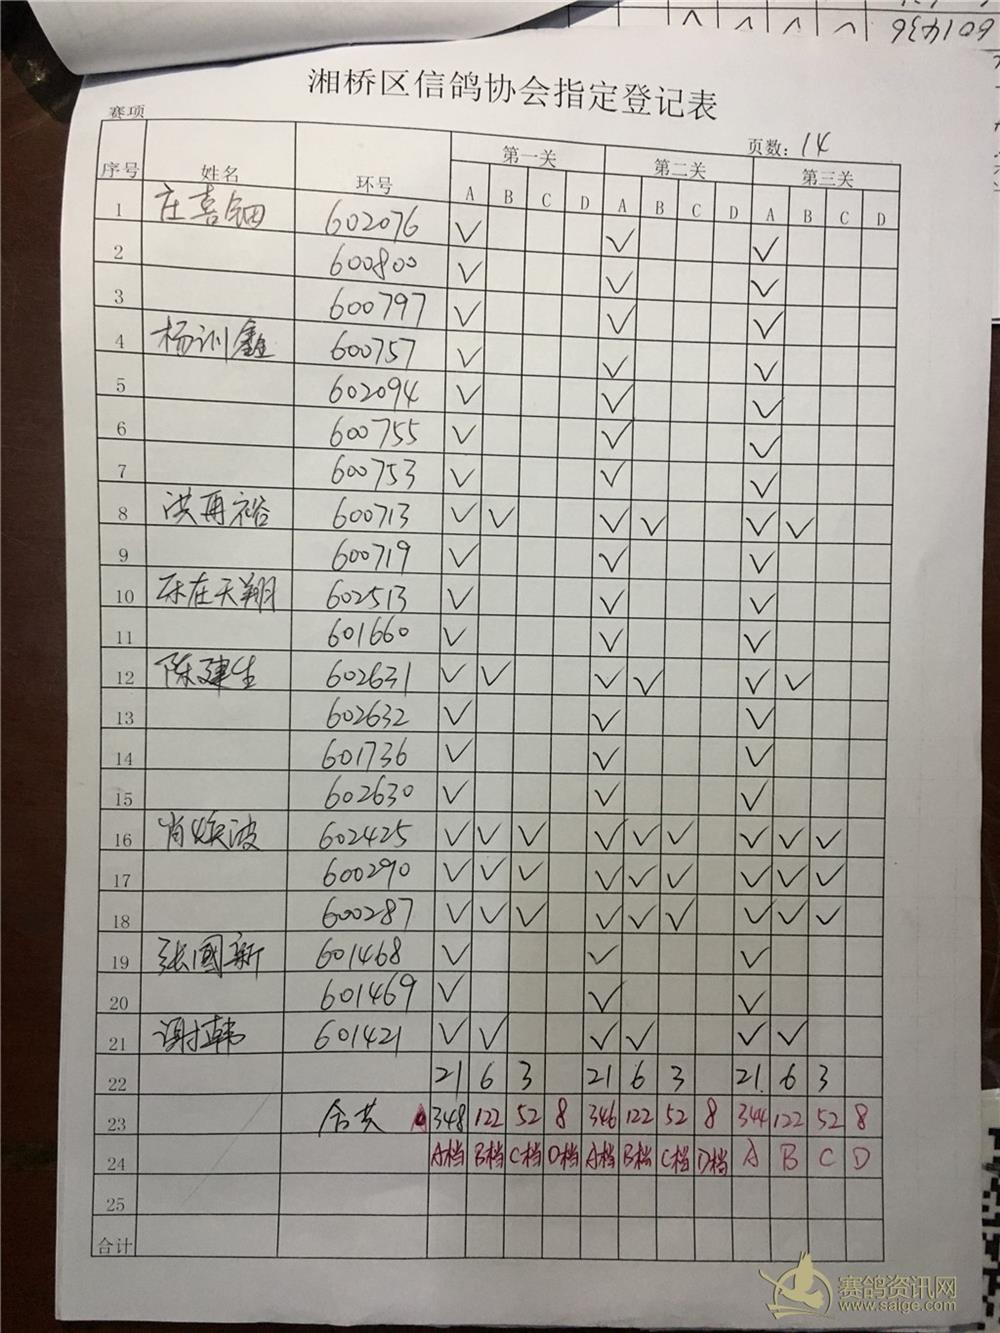 601436
湘桥区信鸽协会指定登记表
赛项 页数：14
序号 姓名 环号 第一关 第二关 第三关
A B C D A B C D A B C D
1 庄喜钿 602076 ✓ ✓ ✓
2 600800 ✓ ✓ ✓
3 600797 ✓ ✓ ✓
4 杨训鑫 600757 ✓ ✓ ✓
5 602094 ✓ ✓ ✓
6 600755 ✓ ✓ ✓
7 600753 ✓ ✓ ✓
8 洪再裕 600713 ✓ ✓ ✓ ✓ ✓ ✓
9 600719 ✓ ✓ ✓
10 在天翔 602513 ✓ ✓ ✓
11 601660 ✓ ✓ ✓
12 陈建生 602631 ✓ ✓ ✓ ✓ ✓ ✓
13 602632 ✓ ✓ ✓
14 601736 ✓ ✓ ✓
15 602630 ✓ ✓ ✓
16 肖焕波 602425 ✓ ✓ ✓ ✓ ✓ ✓ ✓ ✓ ✓
17 600290 ✓ ✓ ✓ ✓ ✓ ✓ ✓ ✓ ✓
18 600287 ✓ ✓ ✓ ✓ ✓ ✓ ✓ ✓ ✓
19 张國新 601468 ✓ ✓ ✓
20 601469 ✓ ✓ ✓
21 谢韩 601421 ✓ ✓ ✓ ✓ ✓ ✓
22 21 6 3 21 6 3 21 6 3
23 合共 348 122 52 8 346 122 52 8 344 122 52 8
24 A档 B档 C档 D档 A档 B档 C档 D档 A B C D
25
合计
赛鸽资讯网
www.saige.com